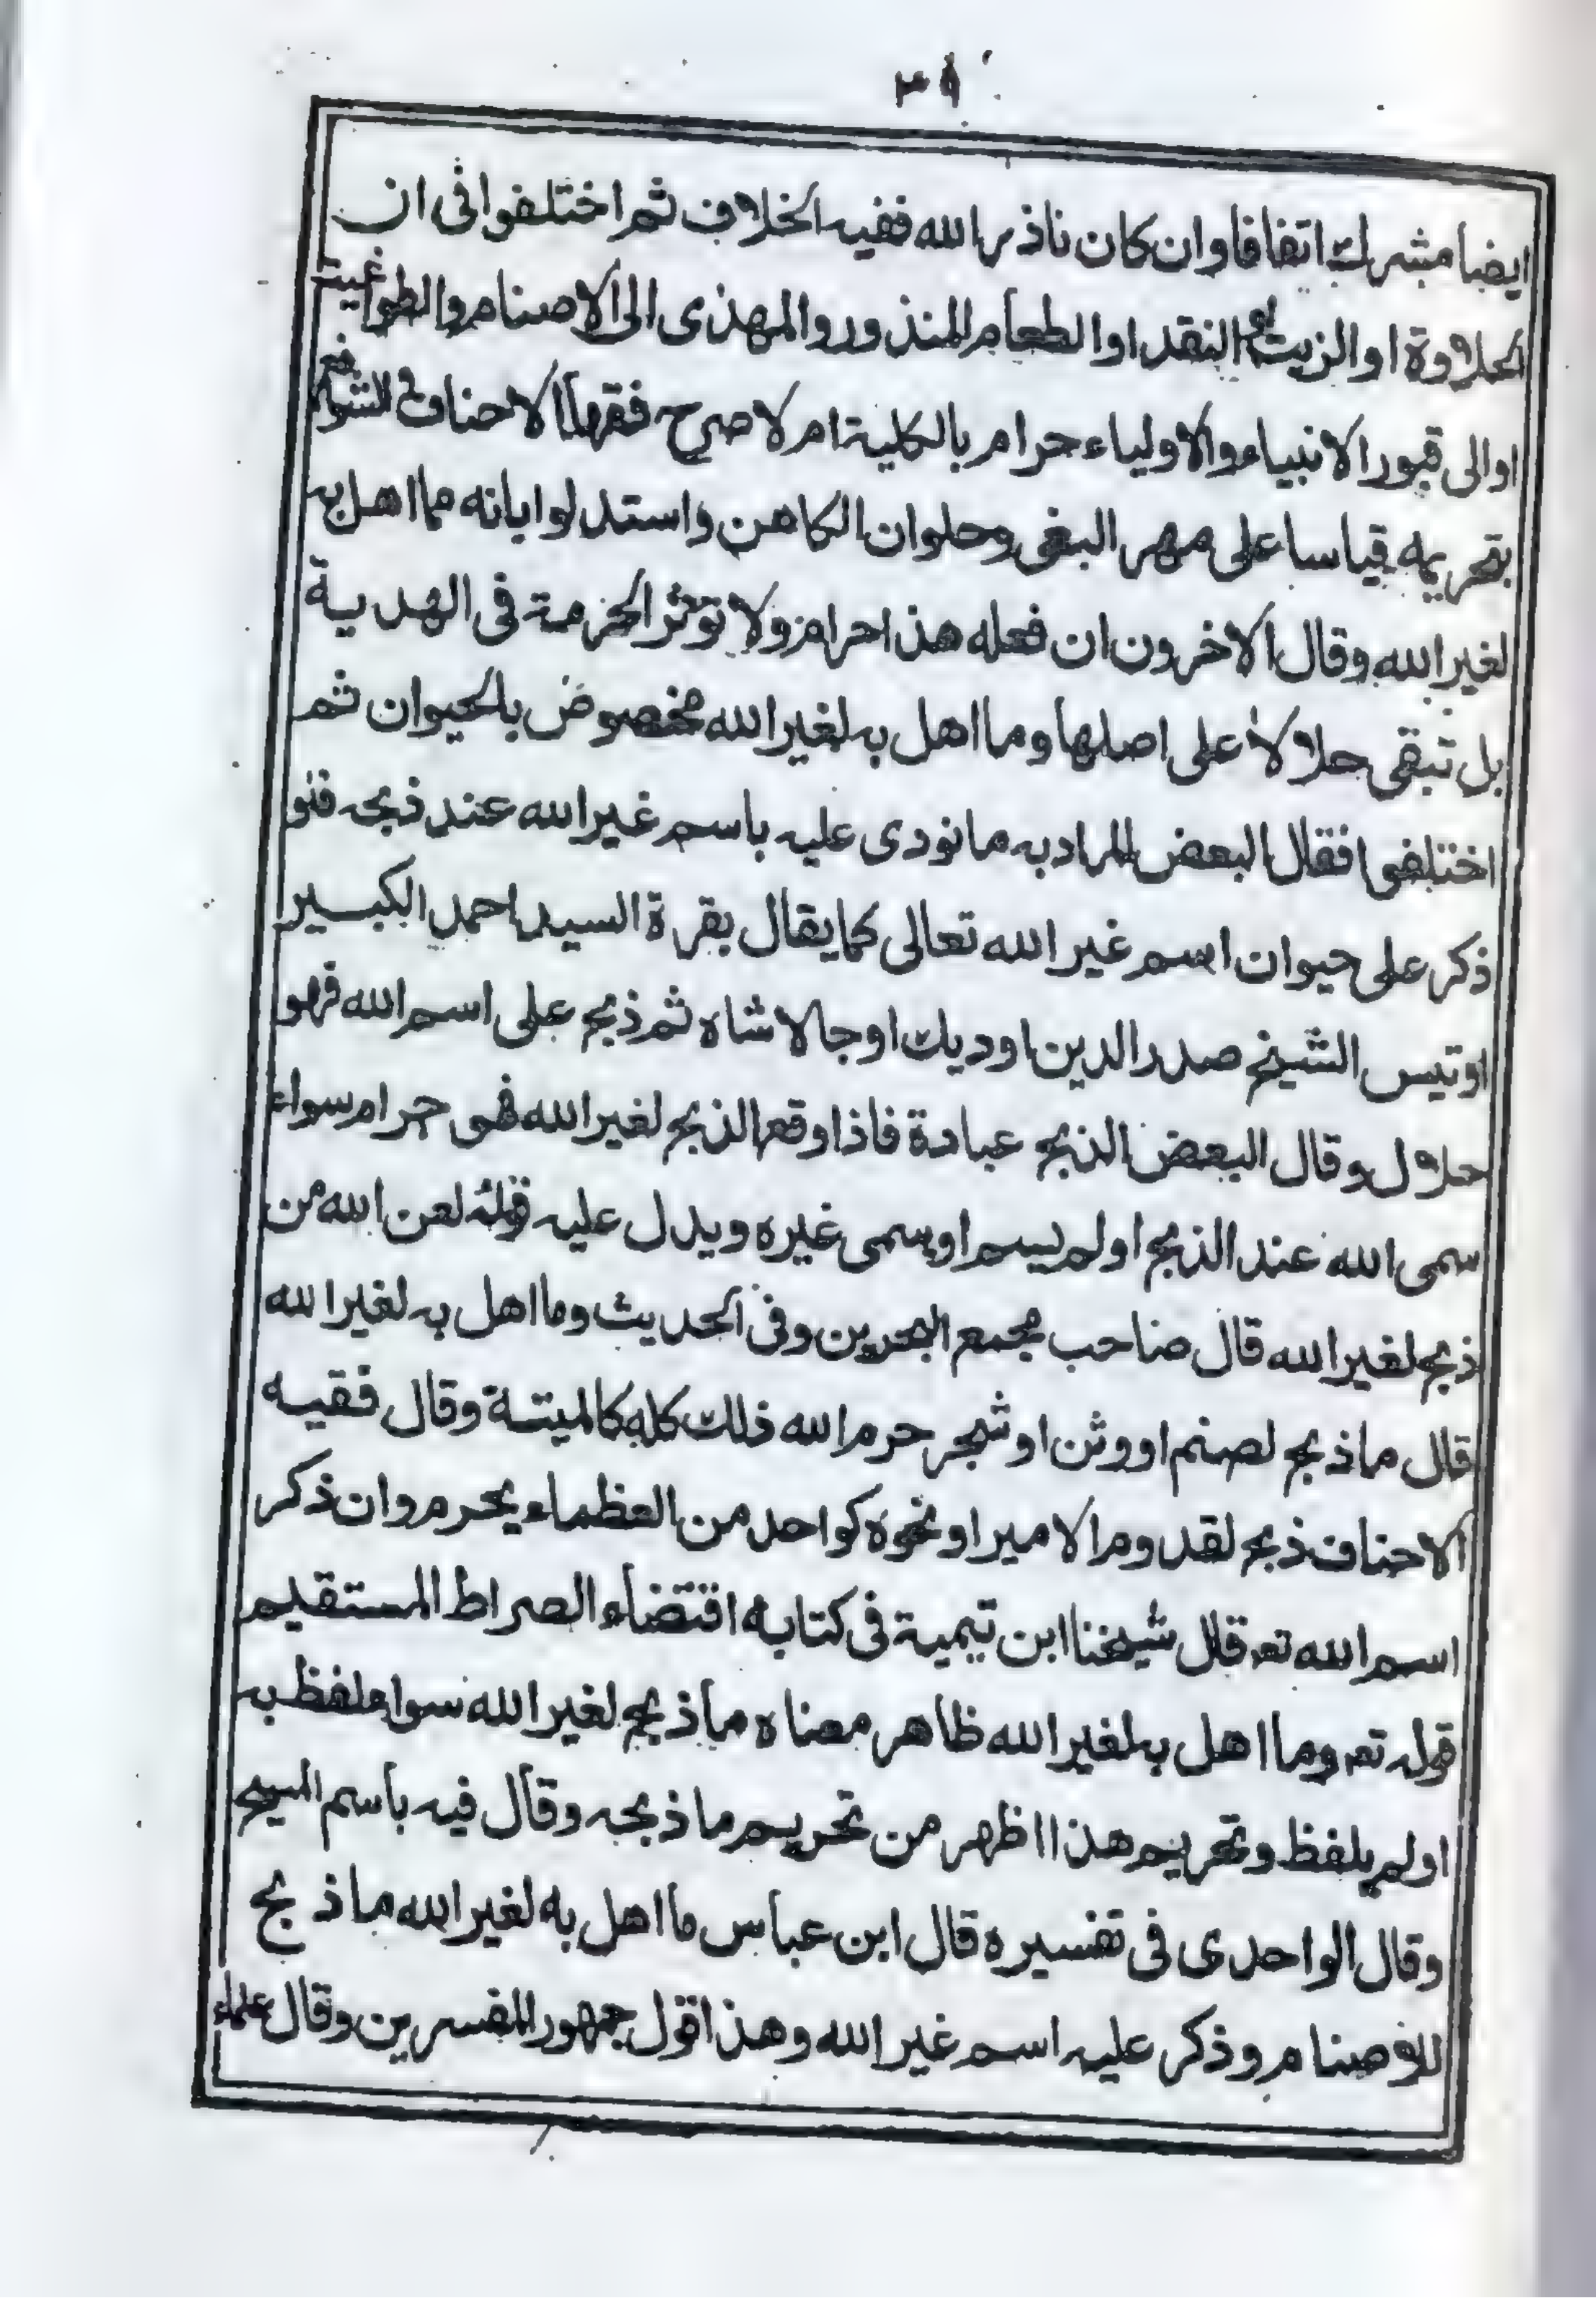 ٣٩
ايضا مشرك اتفاقا وان كان ناذر الله ففيه الخلاف ثم اختلفوا فى ان
الحلاوة او الزيت او النقد او الطعام المنذور والمهدى الى الاصنام والطواغيت
او الى قبور الانبياء والاولياء حرام بالكلية ام لا صرح فقهاء الاحناف والشوافع
بتحريمه قياسا على مهر البغى وحلوان الكاهن واستدلوا بانه مما اهل به
لغير الله وقال الاخرون ان فعله هذا حرام ولا توثر الحرمة فى الهدية
بل تبقى حلالا على اصلها وما اهل به لغير الله مخصوص بالحيوان ثم
اختلفوا فقال البعض المراد به ما نودى عليه باسم غير الله عند ذبحه فلو
ذكر على حيوان اسم غير الله تعالى كما يقال بقرة السيد احمد الكبير
او تيس الشيخ صدر الدين او ديك اوجالا شاه ثم ذبح على اسم الله فهو
حلال وقال البعض الذبح عبادة فاذا وقع الذبح لغير الله فهى حرام سواء
سمى الله عند الذبح او لم يسم او سمى غيره ويدل عليه قوله لعن الله من
ذبح لغير الله قال صاحب مجمع البحرين وفى الحديث وما اهل به لغير الله
قال ما ذبح لصنم او وثن او شجر حرم الله ذلك كله كالميتة وقال فقيه
الاحناف ذبح لقدوم الامير او نحوه كواحد من العظماء يحرم وان ذكر
اسم الله تعه قال شيخنا ابن تيمية فى كتابه اقتضاء الصراط المستقيم
قوله تعه وما اهل به لغير الله ظاهر معناه ما ذبح لغير الله سواء لفظ به
او لم يلفظ وتحريم هذا اظهر من تحريم ما ذبحه وقال فيه باسم المسيح
وقال الواحدى فى تفسيره قال ابن عباس ما اهل به لغير الله ما ذبح
للاصنام وذكر عليه اسم غير الله وهذا قول جمهور المفسرين وقال علماء